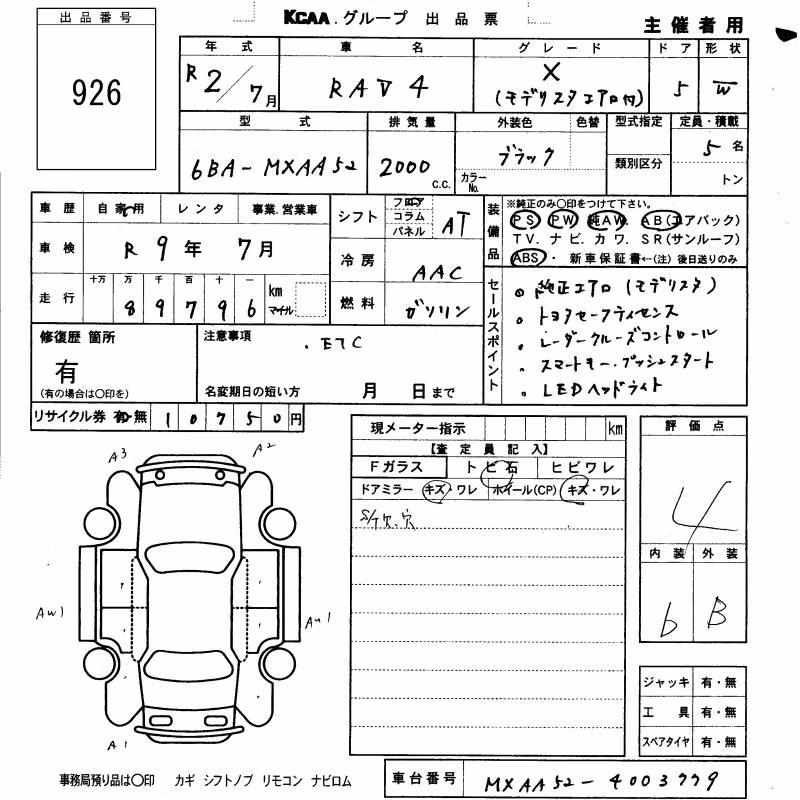 出品番号
926
KCAA.グループ 出品票
主催者用
年式 車名 グレード ドア 形状
R2/7月 RAV4 X
(モデリスタエアロ付) 5 W
型式 排気量 外装色 色替 型式指定 定員・積載
6BA-MXAA52 2000 c.c. ブラック カラーNo. 類別区分 5名
トン
車歴 自家用 レンタ 事業.営業車
車検 R9年7月
走行 十万 万 千 百 十 一
89796 km マイル
シフト フロア コラム パネル AT
冷房 AAC
燃料 ガソリン
装備品 ※純正のみ○印をつけて下さい。
PS PW 純AW. AB(エアバック)
TV. ナビ. カワ. SR(サンルーフ)
ABS・ 新車保証書←(注) 後日送りのみ
セールスポイント
。純正エアロ(モデリスタ)
・トヨタセーフティセンス
・レーダークルーズコントロール
・スマートキー・プッシュスタート
・LEDヘッドライト
修復歴 箇所
有
(有の場合は○印を)
注意事項
.ETC
名変期日の短い方 月 日まで
リサイクル券 有 無 10750円
現メーター指示 km
【査定員記入】
Fガラス トビ石 ヒビワレ
ドアミラー キズ・ワレ ホイール(CP) キズ・ワレ
S/T欠.穴
評価点
4
内装 外装
b B
A3 A2
AW1 AW1
A1
ジャッキ 有・無
工具 有・無
スペアタイヤ 有・無
事務局預り品は○印 カギ シフトノブ リモコン ナビロム
車台番号 MXAA52-4003779